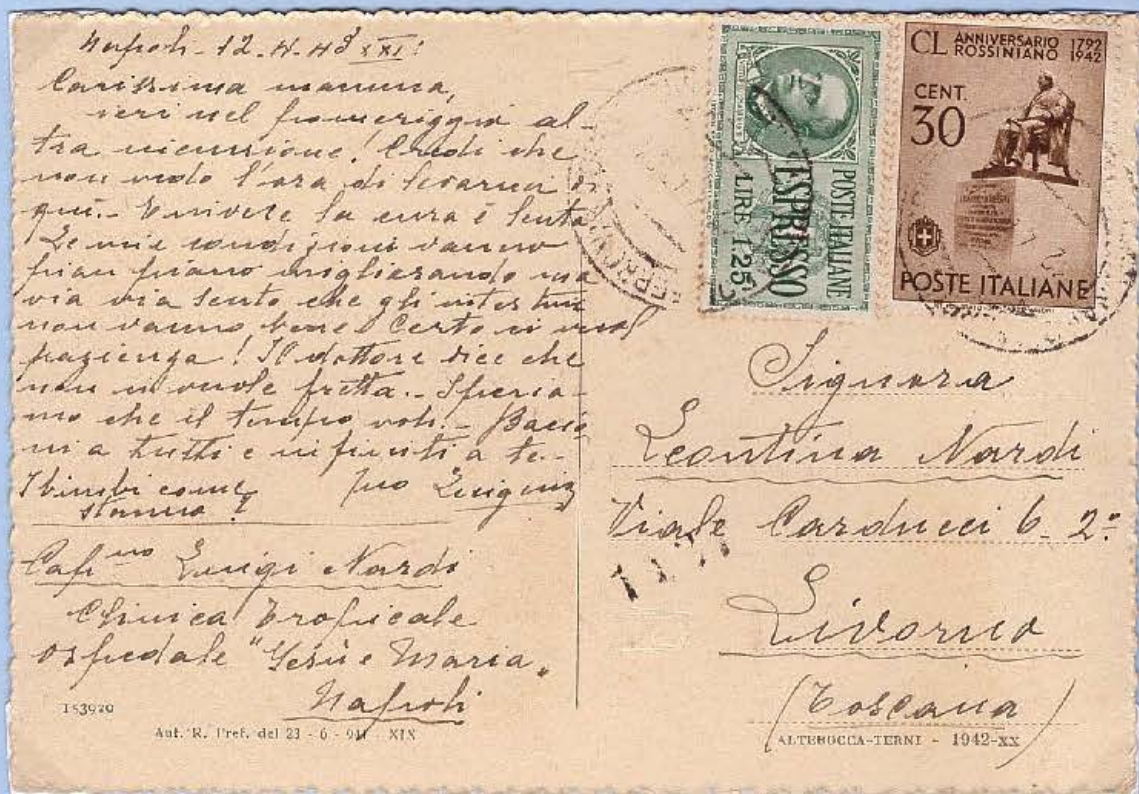 Napoli - 12.4.43 XXI:
Carissima mamma,
ieri nel pomeriggio al-
tra incursione! Credi che
non vedo l'ora di levarmi di
qui. -
la cura è lenta
Le mie condizioni vanno
pian piano migliorando ma
via via sento che gli intestini
non vanno bene. Certo ci vuol
pazienza! Il dottore dice che
non ci vuole fretta. - Speria-
mo che il tempo voli. - Baci
a tutti e infiniti a te -
I bimbi come
stanno?
tuo Luigino
Cap.no Luigi Nardi
Clinica Tropicale
Ospedale "Gesù e Maria"
Napoli
153920
Aut. R. Pref. del 23 - 6 - 941 - XIX
POSTE ITALIANE
ESPRESSO
LIRE 1,25
CL ANNIVERSARIO 1792
ROSSINIANO 1942
CENT.
30
POSTE ITALIANE
Signora
Leontina Nardi
Viale Carducci 6. 2º
Livorno
(Toscana)
ALTEROCCA-TERNI - 1942-XX